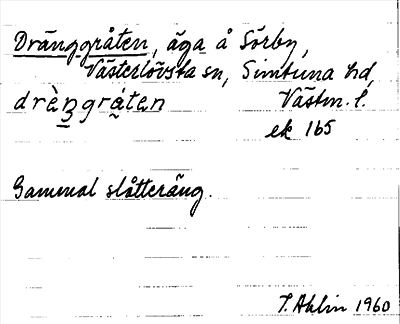 Dränggråten, äga å Sörby,
Västerlövsta sn, Simtuna hd,
drèŋgráten Västm. l.
ek 165
Gammal slåtteräng.
T. Ahlin 1960